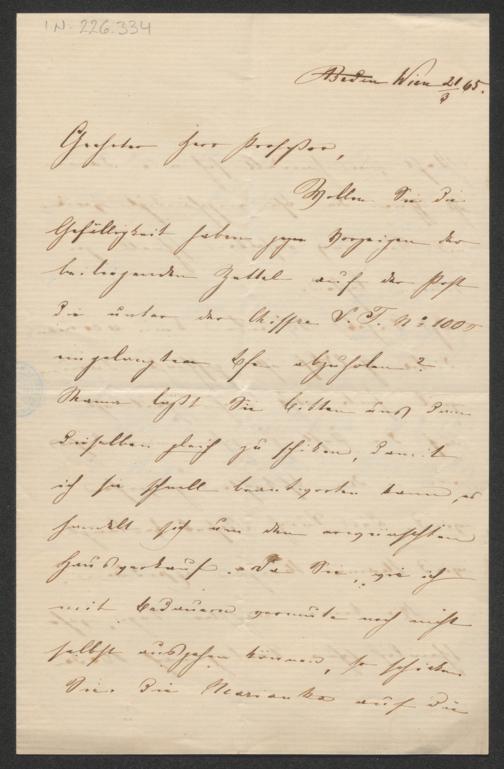 I.N. 226.334
Baden Wien 21/3 65.
Geehrter Herr Professor,
Wollen Sie die
Gefälligkeit haben gegen Vorzeigen der
beiliegenden Zettel auf der Post
die unter der Chiffre S. T. No 1005
eingelangten abzuholen?
Mama läßt Sie bitten uns dann
dieselben gleich zu schiken, damit
ich sie schnell beantworten kann, es
handelt sich um den erwünschten
Hausverkauf. Da Sie, wie ich
mit Bedauern vermute noch nicht
selbst ausgehen können, so schicken
Sie die Marianka auf die